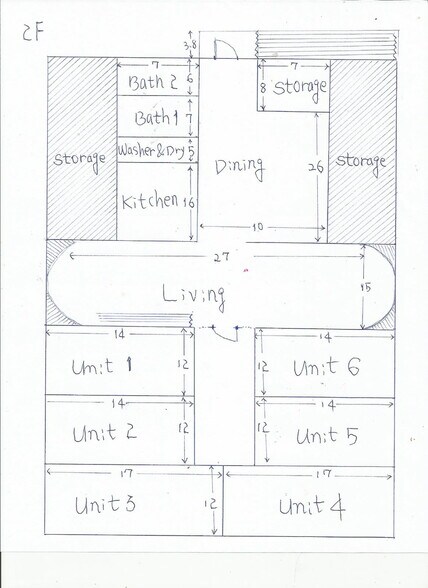 2F
3.8
7
7
Bath 2
6
8
Storage
Bath 1
7
Washer & Dry
5
Storage
Dining
26
Storage
Kitchen
16
10
27
15
Living
14
14
Unit 1
12
12
Unit 6
14
14
Unit 2
12
12
Unit 5
17
17
Unit 3
12
Unit 4